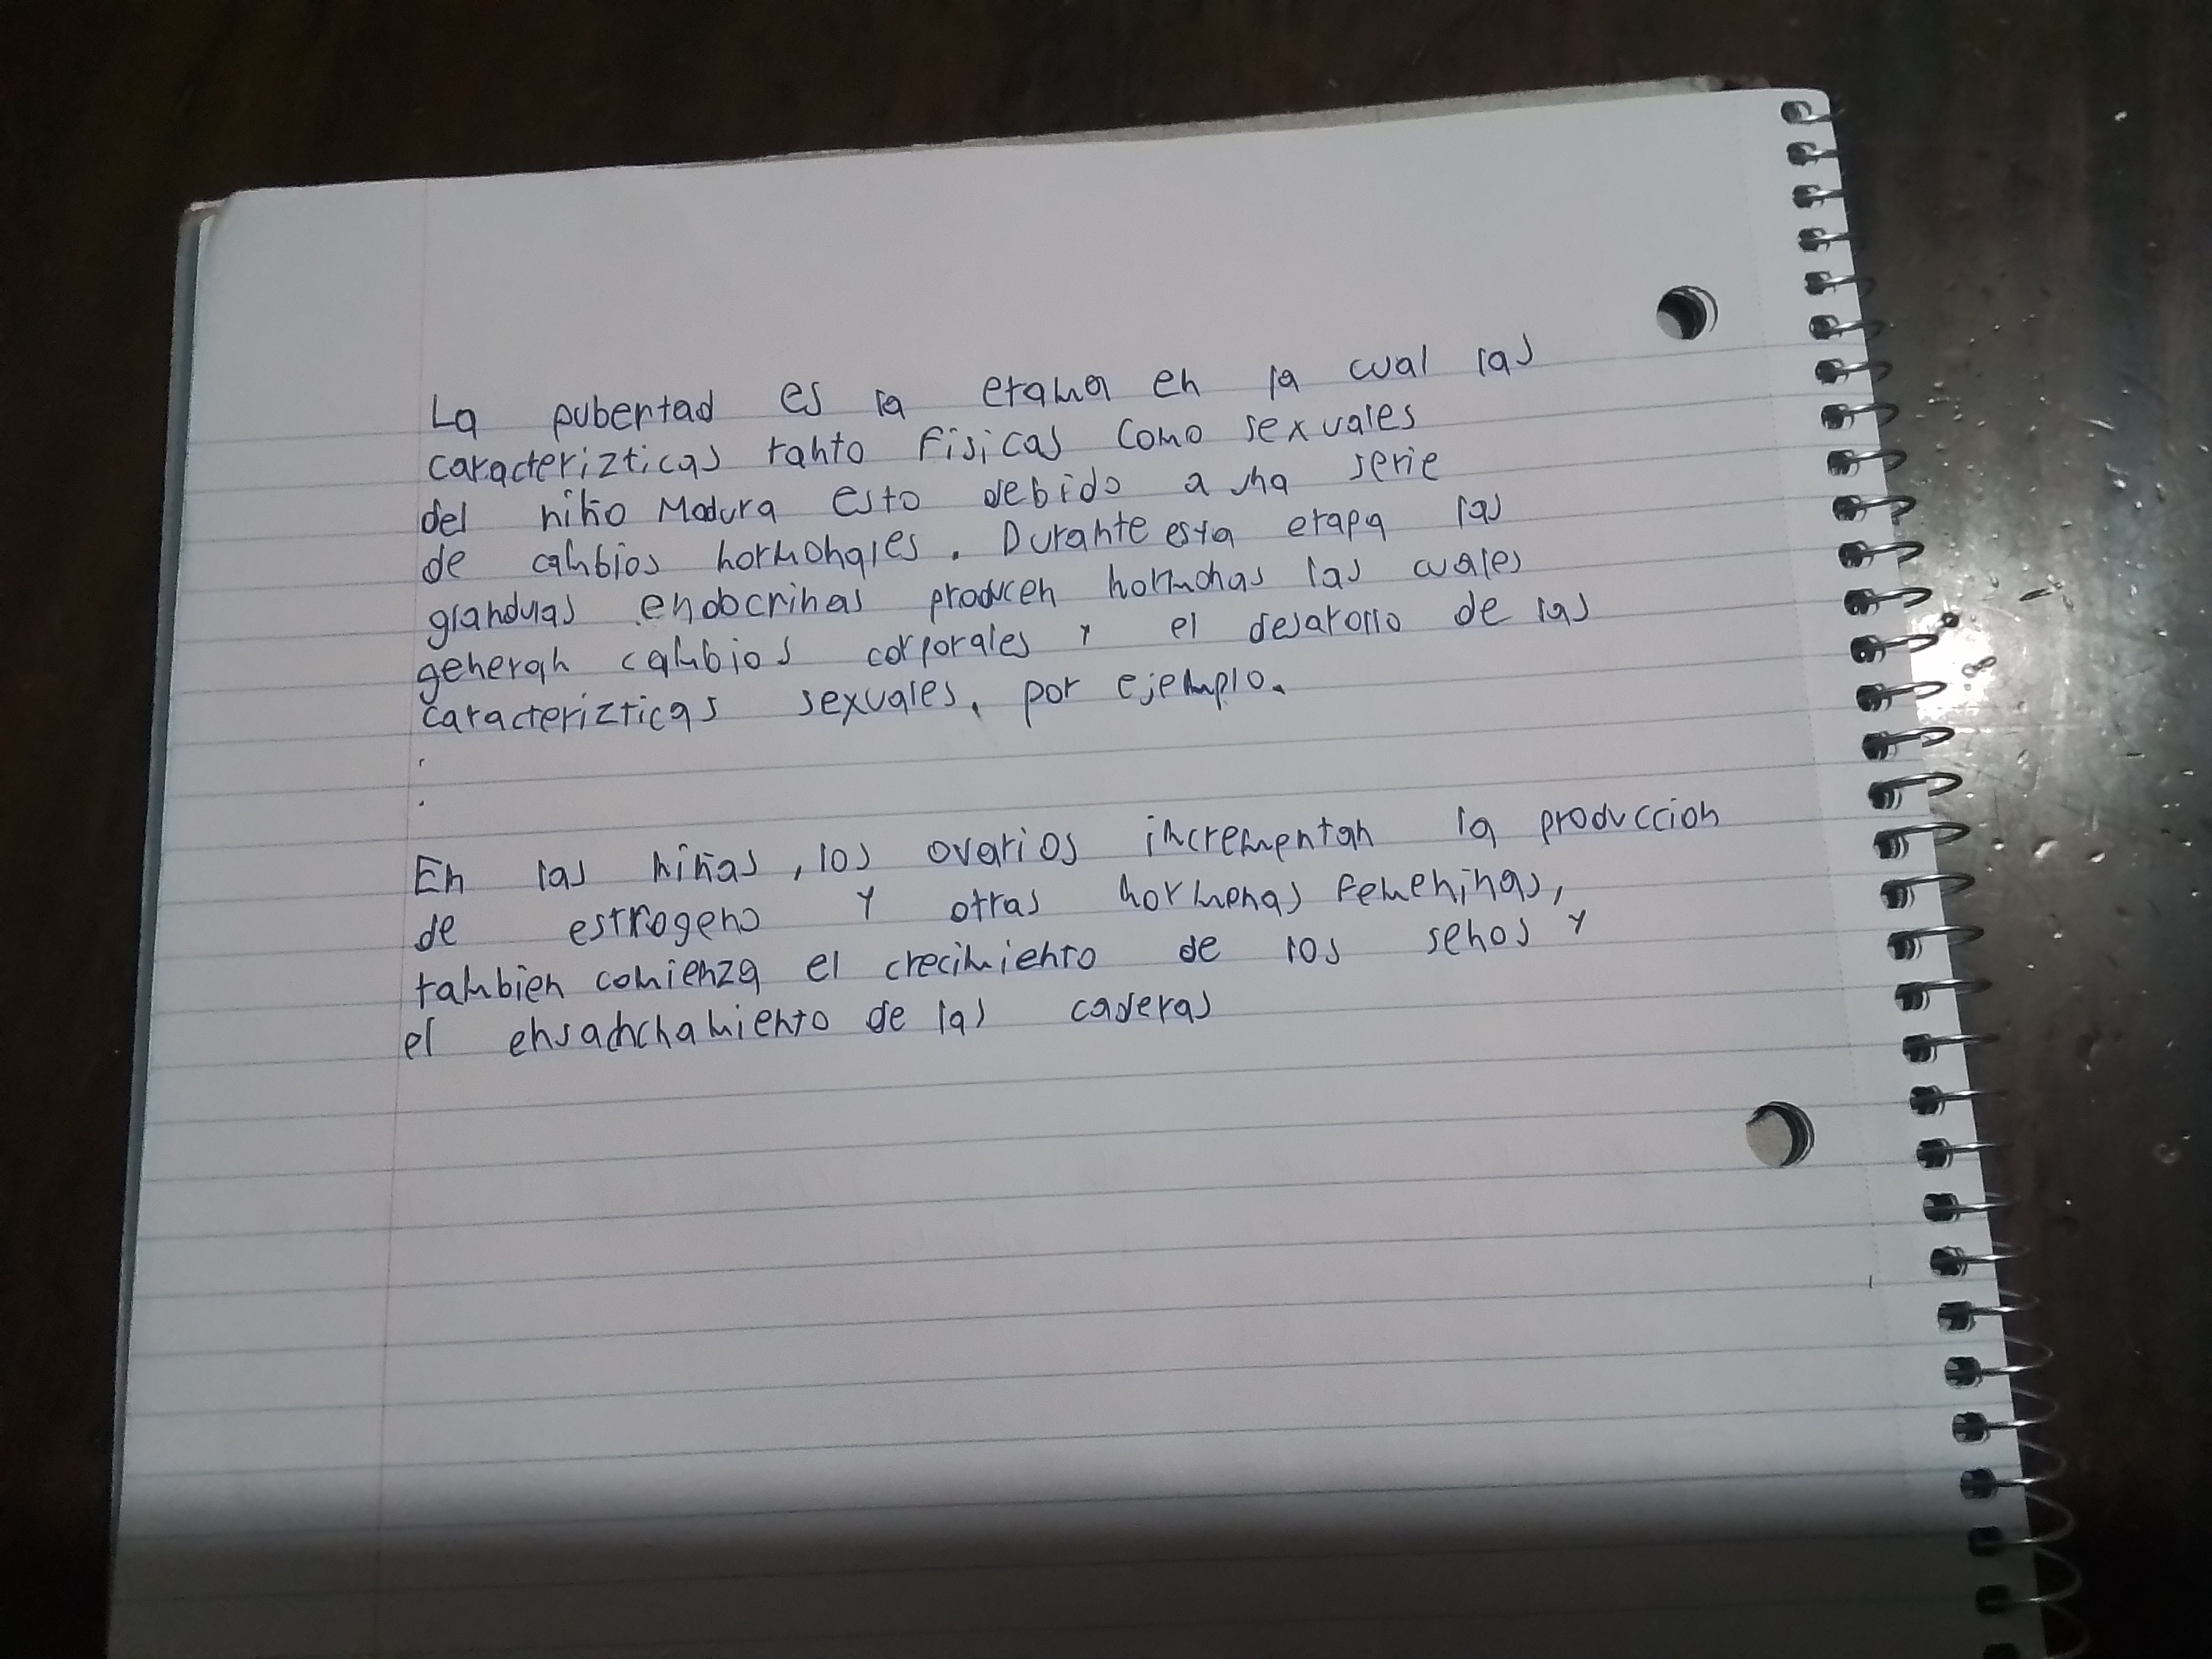 La pubertad es la etapa en la cual las
caracterizticas tanto fisicas como sexuales
del niño Madura esto debido a una serie
de cambios hormonales. Durante esta etapa las
glandulas endocrinas producen hormonas las cuales
generan cambios corporales y el desarollo de las
caracterizticas sexuales, por ejemplo.
.
.
En las niñas, los ovarios incrementan la produccion
de estrogeno y otras hormonas femeninas,
tambien comienza el crecimiento de los senos y
el ensanchamiento de las caderas